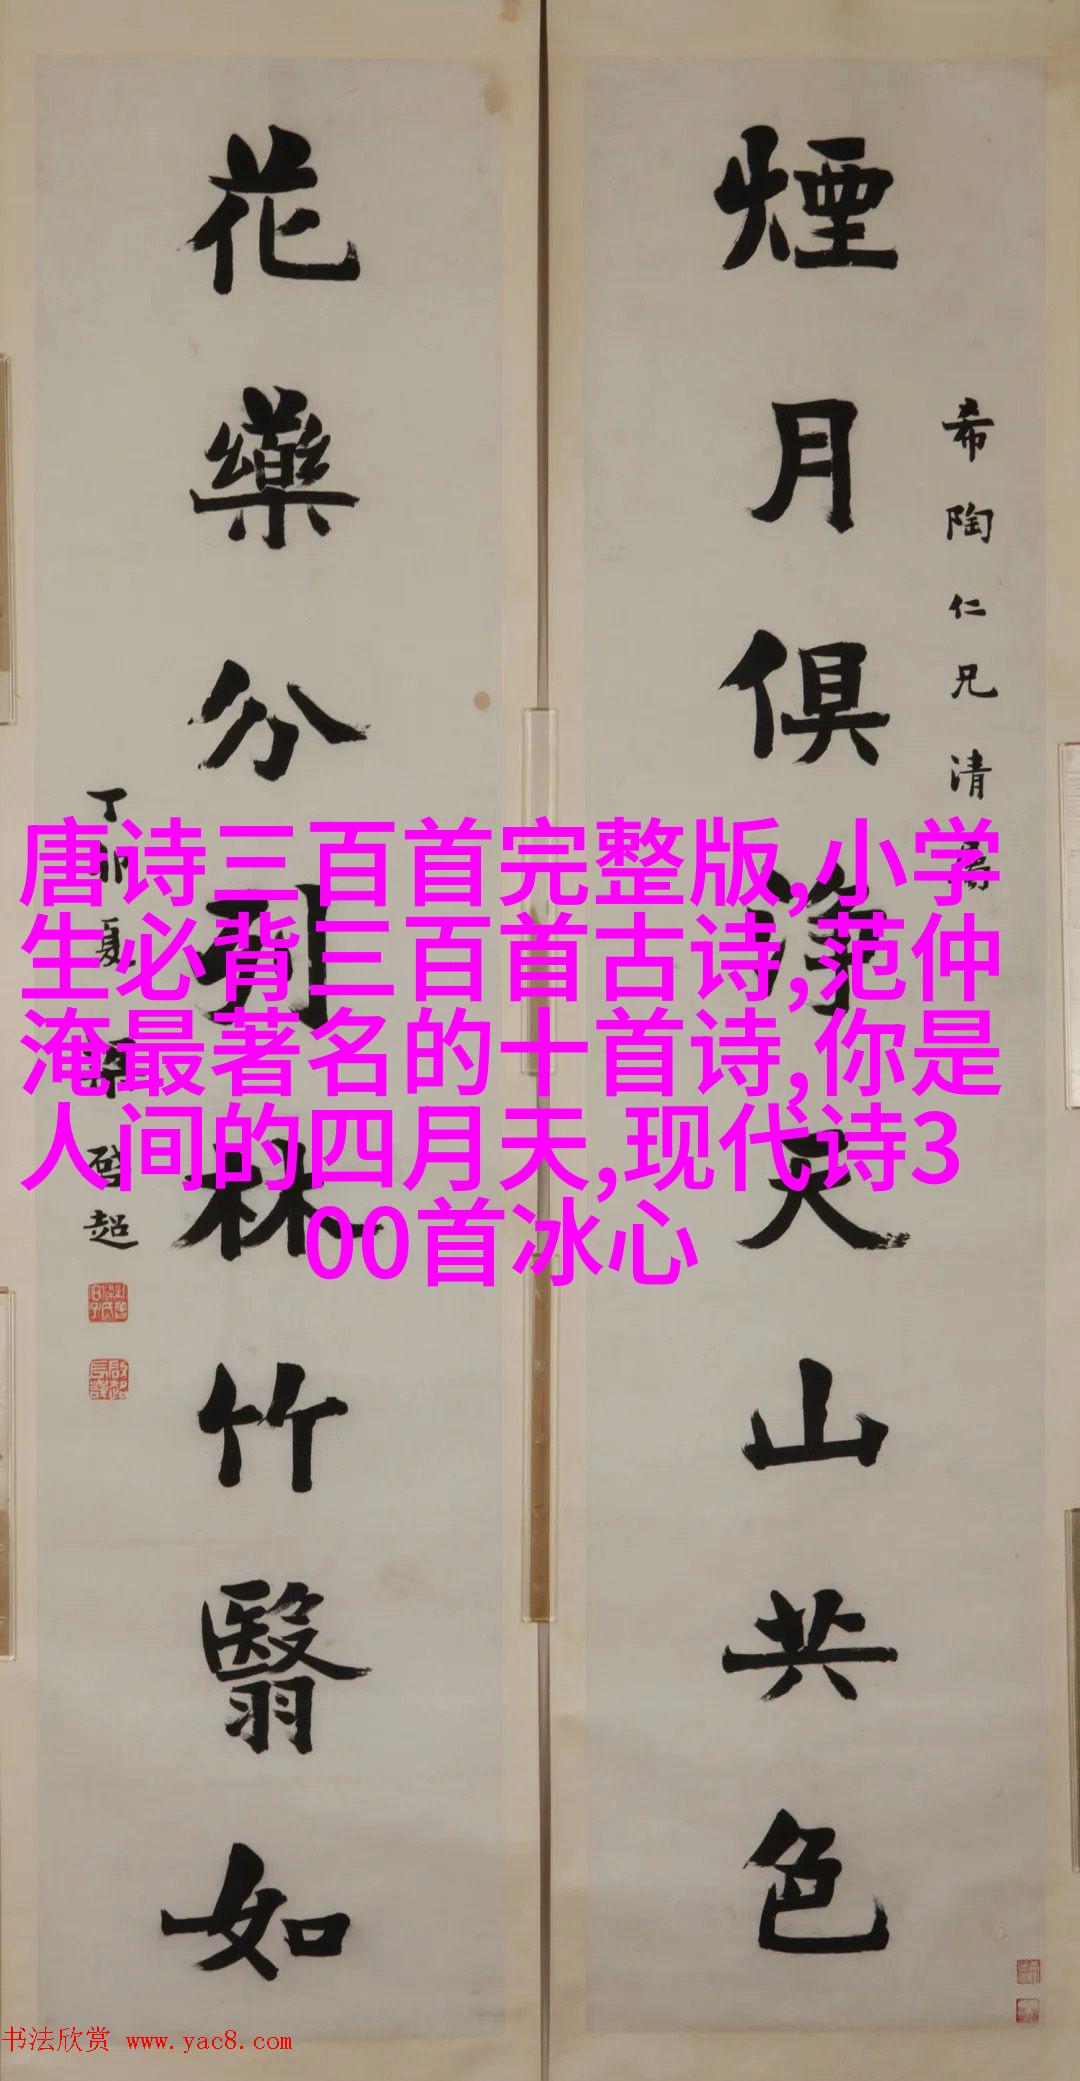 煙月俱淨天山共色
希陶仁兄清屬
花藥分列林竹翳如
丁卯夏 梁啓超
唐诗三百首完整版,小学
生必背三百首古诗,范仲
淹最著名的十首诗,你是
人间的四月天,现代诗3
00首冰心
书法欣赏 www.yac8.com